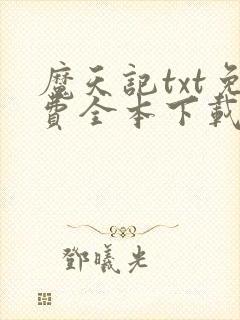 魔天記txt免
費全本下載
鄧曦光